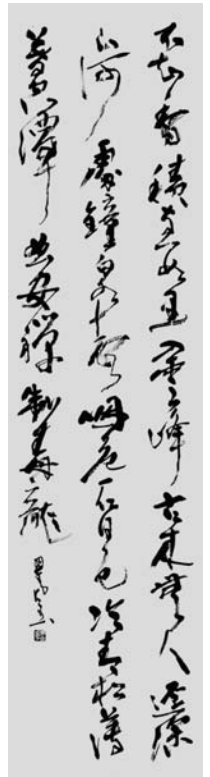 不知香積寺數里入雲峰古木無人逕深
山何處鐘泉聲咽危石日色冷青松薄
暮空潭曲安禪制毒龍